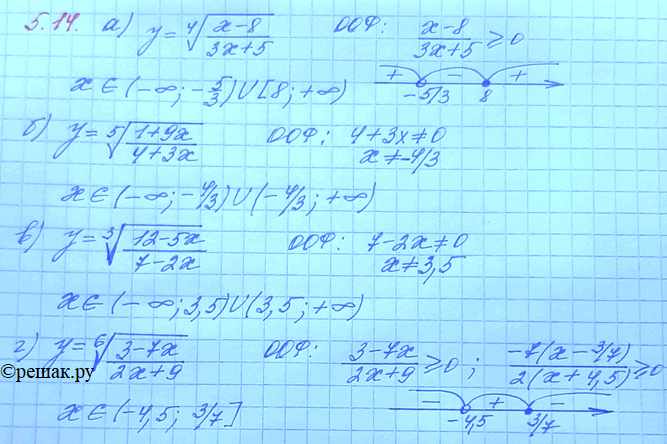 5.14. а) y = ⁴√((x-8)/(3x+5)) ООФ: (x-8)/(3x+5) ≥ 0
x ∈ (-∞; -5/3) ∪ [8; +∞) + - + -5/3 8
б) y = ⁵√((1+9x)/(4+3x)) ООФ: 4+3x ≠ 0
x ≠ -4/3
x ∈ (-∞; -4/3) ∪ (-4/3; +∞)
в) y = ³√((12-5x)/(7-2x)) ООФ: 7-2x ≠ 0
x ≠ 3,5
x ∈ (-∞; 3,5) ∪ (3,5; +∞)
г) y = ⁶√((3-7x)/(2x+9)) ООФ: (3-7x)/(2x+9) ≥ 0 ; (-7(x-3/7))/(2(x+4,5)) ≥ 0
©решак.ру
x ∈ (-4,5; 3/7] - + - -4,5 3/7